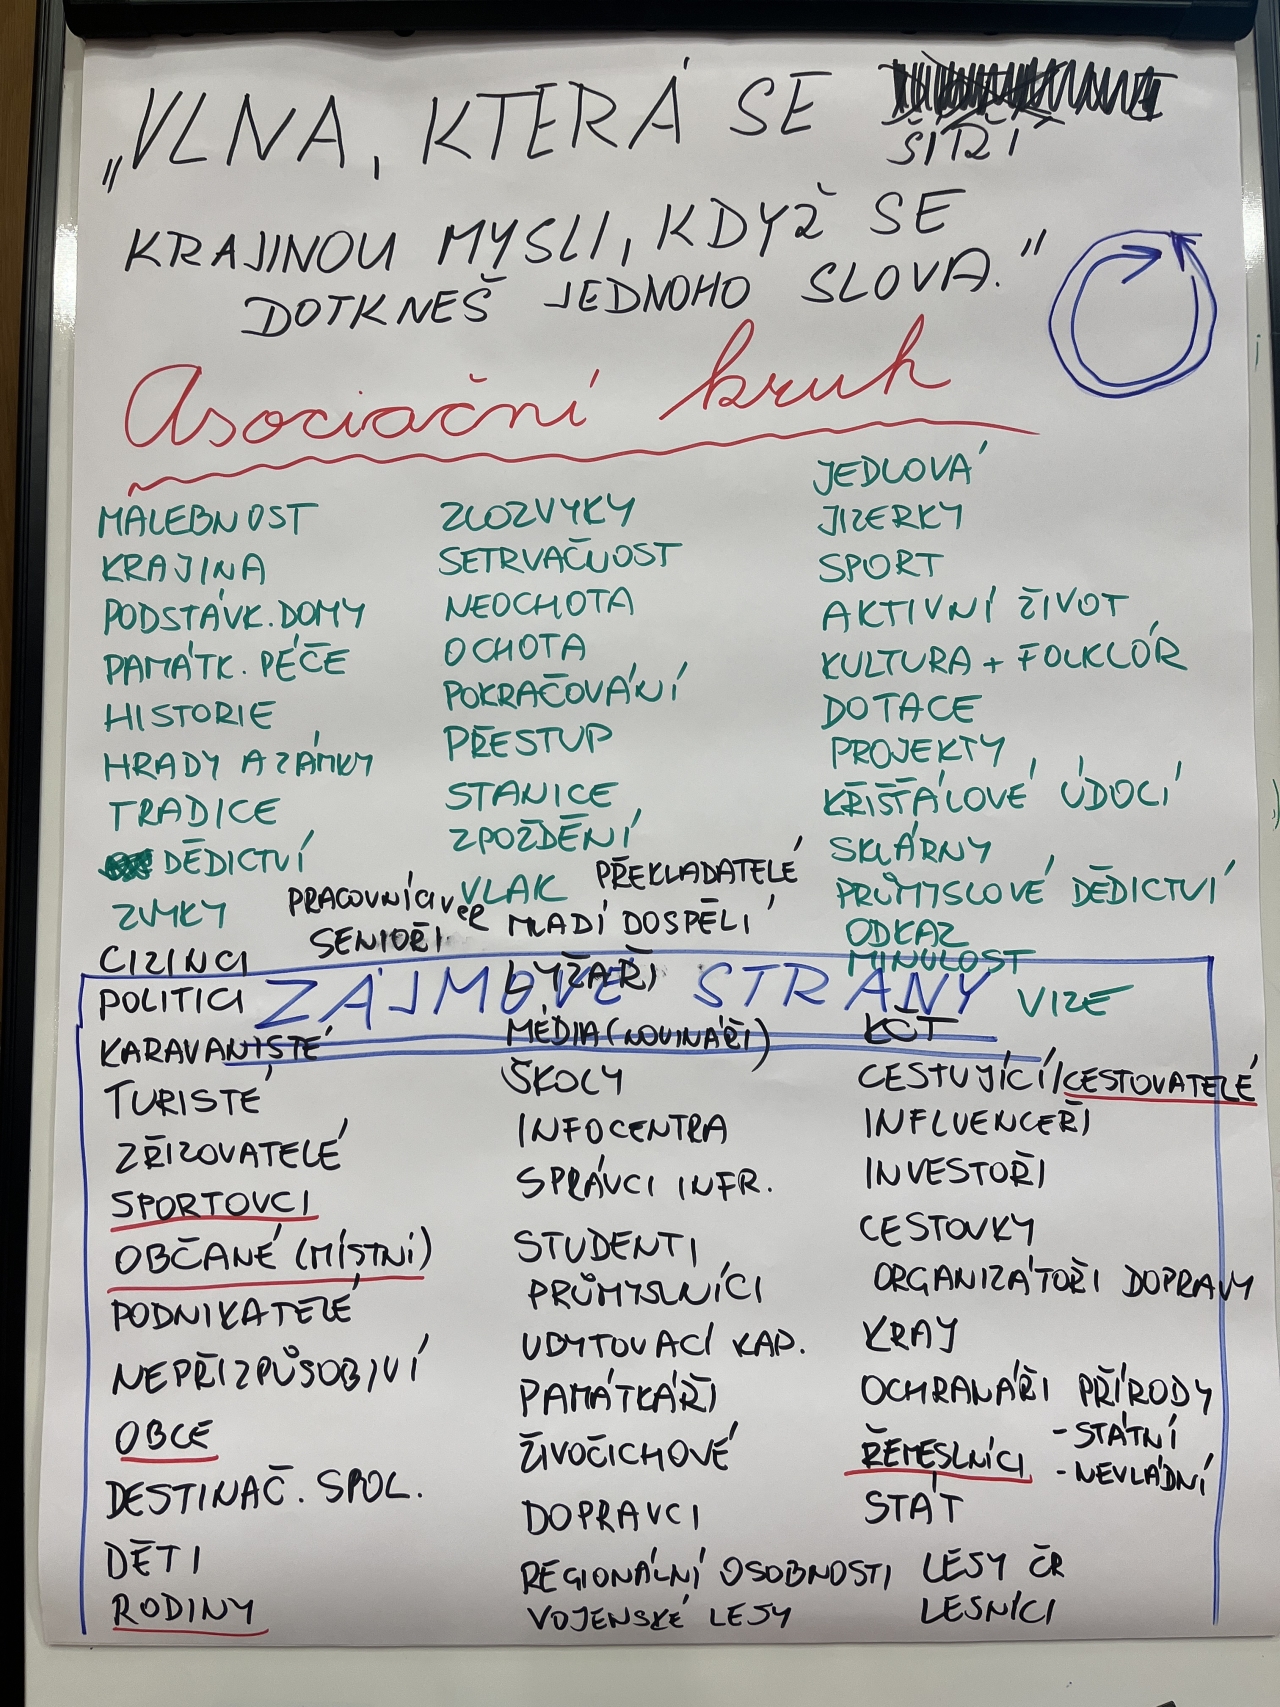 „VLNA, KTERÁ SE
ŠÍŘÍ
KRAJINOU MYSLI, KDYŽ SE
DOTKNEŠ JEDNOHO SLOVA."
Asociační kruh
MALEBNOST
KRAJINA
PODSTÁVK. DOMY
PAMÁTK. PÉČE
HISTORIE
HRADY A ZÁMKY
TRADICE
DĚDICTVÍ
ZVYKY
ZLOZVYKY
SETRVAČNOST
NEOCHOTA
OCHOTA
POKRAČOVÁNÍ
PŘESTUP
STANICE
ZPOŽDĚNÍ
VLAK
JEDLOVÁ
JIZERKY
SPORT
AKTIVNÍ ŽIVOT
KULTURA + FOLKLÓR
DOTACE
PROJEKTY
KŘIŠŤÁLOVÉ ÚDOLÍ
SKLÁRNY
PRŮMYSLOVÉ DĚDICTVÍ
ODKAZ
MINULOST
VIZE
ZÁJMOVÉ STRANY
CIZINCI
POLITICI
KARAVANISTÉ
TURISTÉ
ZŘIZOVATELÉ
SPORTOVCI
OBČANÉ (MÍSTNÍ)
PODNIKATELÉ
NEPŘIZPŮSOBIVÍ
OBCE
DESTINAČ. SPOL.
DĚTI
RODINY
PRACOVNÍCI VER
SENIOŘI
PŘEKLADATELÉ
MLADÍ DOSPĚLÍ
LYŽAŘI
MÉDIA (NOVINÁŘI)
ŠKOLY
INFOCENTRA
SPRÁVCI INFR.
STUDENTI
PRŮMYSLNÍCI
UBYTOVACÍ KAP.
PAMÁTKÁŘI
ŽIVOČICHOVÉ
DOPRAVCI
REGIONÁLNÍ OSOBNOSTI
VOJENSKÉ LESY
KČT
CESTUJÍCÍ/CESTOVATELÉ
INFLUENCEŘI
INVESTOŘI
CESTOVKY
ORGANIZÁTOŘI DOPRAVY
KRAJ
OCHRANÁŘI PŘÍRODY
- STÁTNÍ
- NEVLÁDNÍ
ŘEMESLNÍCI
STÁT
LESY ČR
LESNÍCI